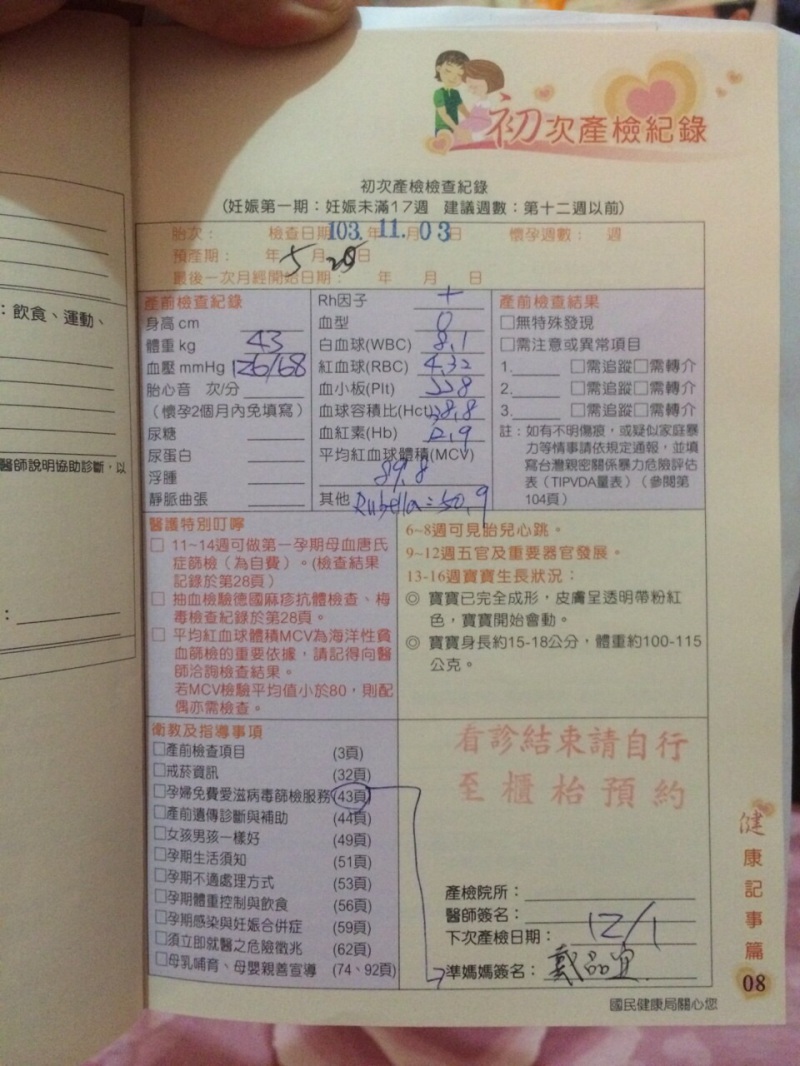 ：飲食、運動、
醫師說明協助診斷，以
：
初次產檢紀錄
初次產檢檢查紀錄
(妊娠第一期：妊娠未滿17週 建議週數：第十二週以前)
胎次： 檢查日期 103.年11.月03日 懷孕週數： 週
預產期： 年5月28日
最後一次月經開始日期： 年 月 日
產前檢查紀錄
身高 cm
體重 kg 43
血壓 mmHg 126/68
胎心音 次/分
（懷孕2個月內免填寫）
尿糖
尿蛋白
浮腫
靜脈曲張
Rh因子 +
血型 O
白血球(WBC) 8.1
紅血球(RBC) 4.32
血小板(Plt) 228
血球容積比(Hct) 38.8
血紅素(Hb) 12.9
平均紅血球體積(MCV)
89.8
其他 Rubella=50.9
產前檢查結果
□無特殊發現
□需注意或異常項目
1. □需追蹤□需轉介
2. □需追蹤□需轉介
3. □需追蹤□需轉介
註：如有不明傷痕，或疑似家庭暴
力等情事請依規定通報，並填
寫台灣親密關係暴力危險評估
表（TIPVDA量表）（參閱第
104頁）
醫護特別叮嚀
□ 11~14週可做第一孕期母血唐氏
症篩檢（為自費）。(檢查結果
記錄於第28頁）
□ 抽血檢驗德國麻疹抗體檢查、梅
毒檢查紀錄於第28頁。
□ 平均紅血球體積MCV為海洋性貧
血篩檢的重要依據，請記得向醫
師洽詢檢查結果。
若MCV檢驗平均值小於80，則配
偶亦需檢查。
6~8週可見胎兒心跳。
9~12週五官及重要器官發展。
13-16週寶寶生長狀況：
◎ 寶寶已完全成形，皮膚呈透明帶粉紅
色，寶寶開始會動。
◎ 寶寶身長約15-18公分，體重約100-115
公克。
衛教及指導事項
□產前檢查項目 (3頁)
□戒菸資訊 (32頁)
□孕婦免費愛滋病毒篩檢服務(43頁)
□產前遺傳診斷與補助 (44頁)
□女孩男孩一樣好 (49頁)
□孕期生活須知 (51頁)
□孕期不適處理方式 (53頁)
□孕期體重控制與飲食 (56頁)
□孕期感染與妊娠合併症 (59頁)
□須立即就醫之危險徵兆 (62頁)
□母乳哺育、母嬰親善宣導 (74、92頁)
看診結束請自行
至櫃枱預約
產檢院所：
醫師簽名：
下次產檢日期： 12/1
準媽媽簽名： 戴品宜
健康記事篇
08
國民健康局關心您